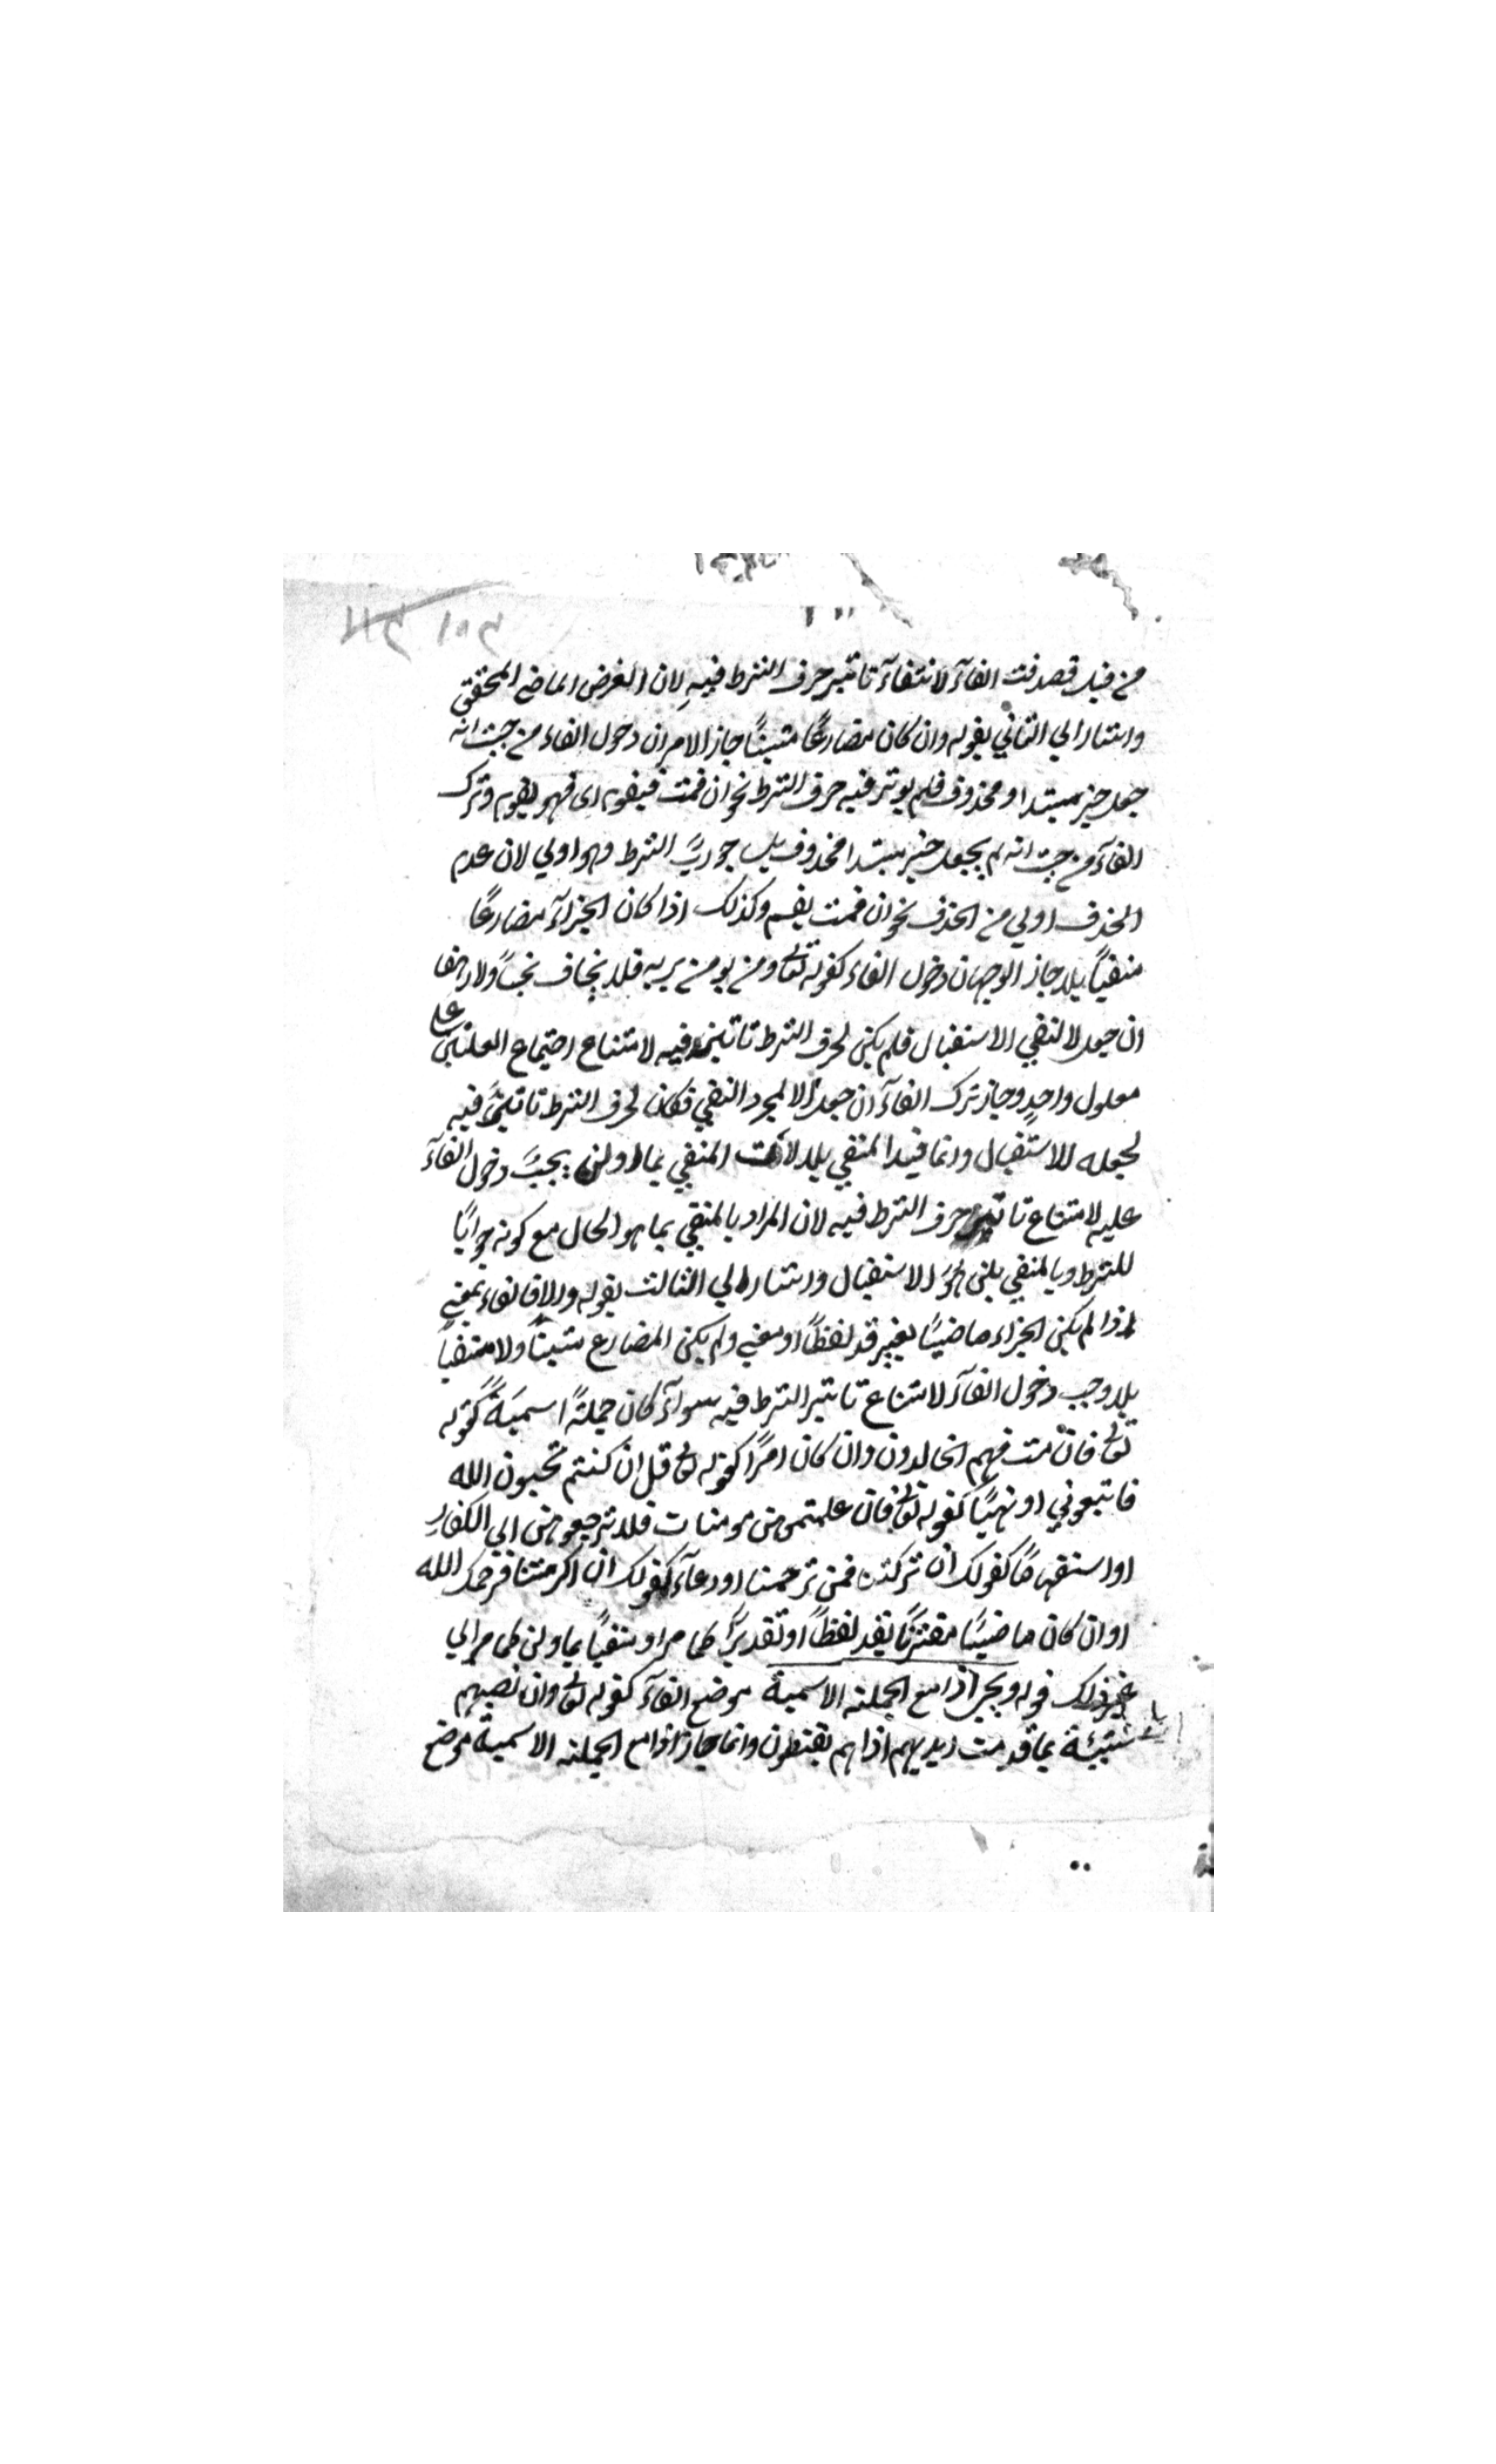 من قبل فصدقت الفآء لانتفآء تاثير حرف الشرط فيه لان الغرض الماضي المحقق
واشار الي الثاني بقوله وان كان مضارعًا مثبتًا جاز الامران دخول الفاء من حيث انه
جعل خبر مبتدا ومحذوف فلم يوثر فيه حرف الشرط نحو ان قمت فيقوم اي فهو يقوم وترك
الفآء من حيث انه لم يجعل خبر مبتدا محذوف بل جواب الشرط وهو اولي لان عدم
الحذف اولي من الحذف نحو ان قمت يقم وكذلك اذا كان الجزآء مضارعًا
منفيًا بلا جاز الوجهان دخول الفاء كقوله تعالى ومن يومن بربه فلا يخاف بخسًا ولا رهقا
ان جعل لا لنفي الاستقبال فلم يكن لحرف الشرط تاثير فيه لامتناع اجتماع العلتين علي
معلول واحدٍ وجاز ترك الفآء ان جعل لا لمجرد النفي فكان لحرف الشرط تاثير فيه
لجعله للاستقبال وانما قيد المنفي بلا لان المنفي بما ولن يجب دخول الفآء
عليه لامتناع تاثير حرف الشرط فيه لان المراد بالمنفي بما هو الحال مع كونه جوابًا
للشرط وبالمنفي بلن الاستقبال واشار الي الثالث بقوله والا فالفاء بمعني
اذا لم يكن الجزاء ماضيًا بغير قد لفظًا او معني ولم يكن المضارع مثبتًا ولا منفيًا
بلا وجب دخول الفآء لامتناع تاثير الشرط فيه سوآء كان جملةً اسميةً كقوله
تعالى فان مت فهم الخالدون وان كان امرًا كقوله تعالى قل ان كنتم تحبون الله
فاتبعوني او نهيًا كقوله تعالى فان علمتموهن مومنات فلا ترجعوهن الي الكفار
او استفهامًا كقولك ان تركتنا فمن يرحمنا او دعآءً كقولك ان اكرمتنا فرحمك الله
او ان كان ماضيًا مقترنًا بقد لفظًا او تقديرًا كما مر او منفيًا بما ولن كما مر الي
غير ذلك قوله ويجئ اذا مع الجملة الاسمية موضع الفآء كقوله تعالى وان تصبهم
سيئة بما قدمت ايديهم اذا هم يقنطون وانما جاز اذا مع الجملة الاسمية موضع